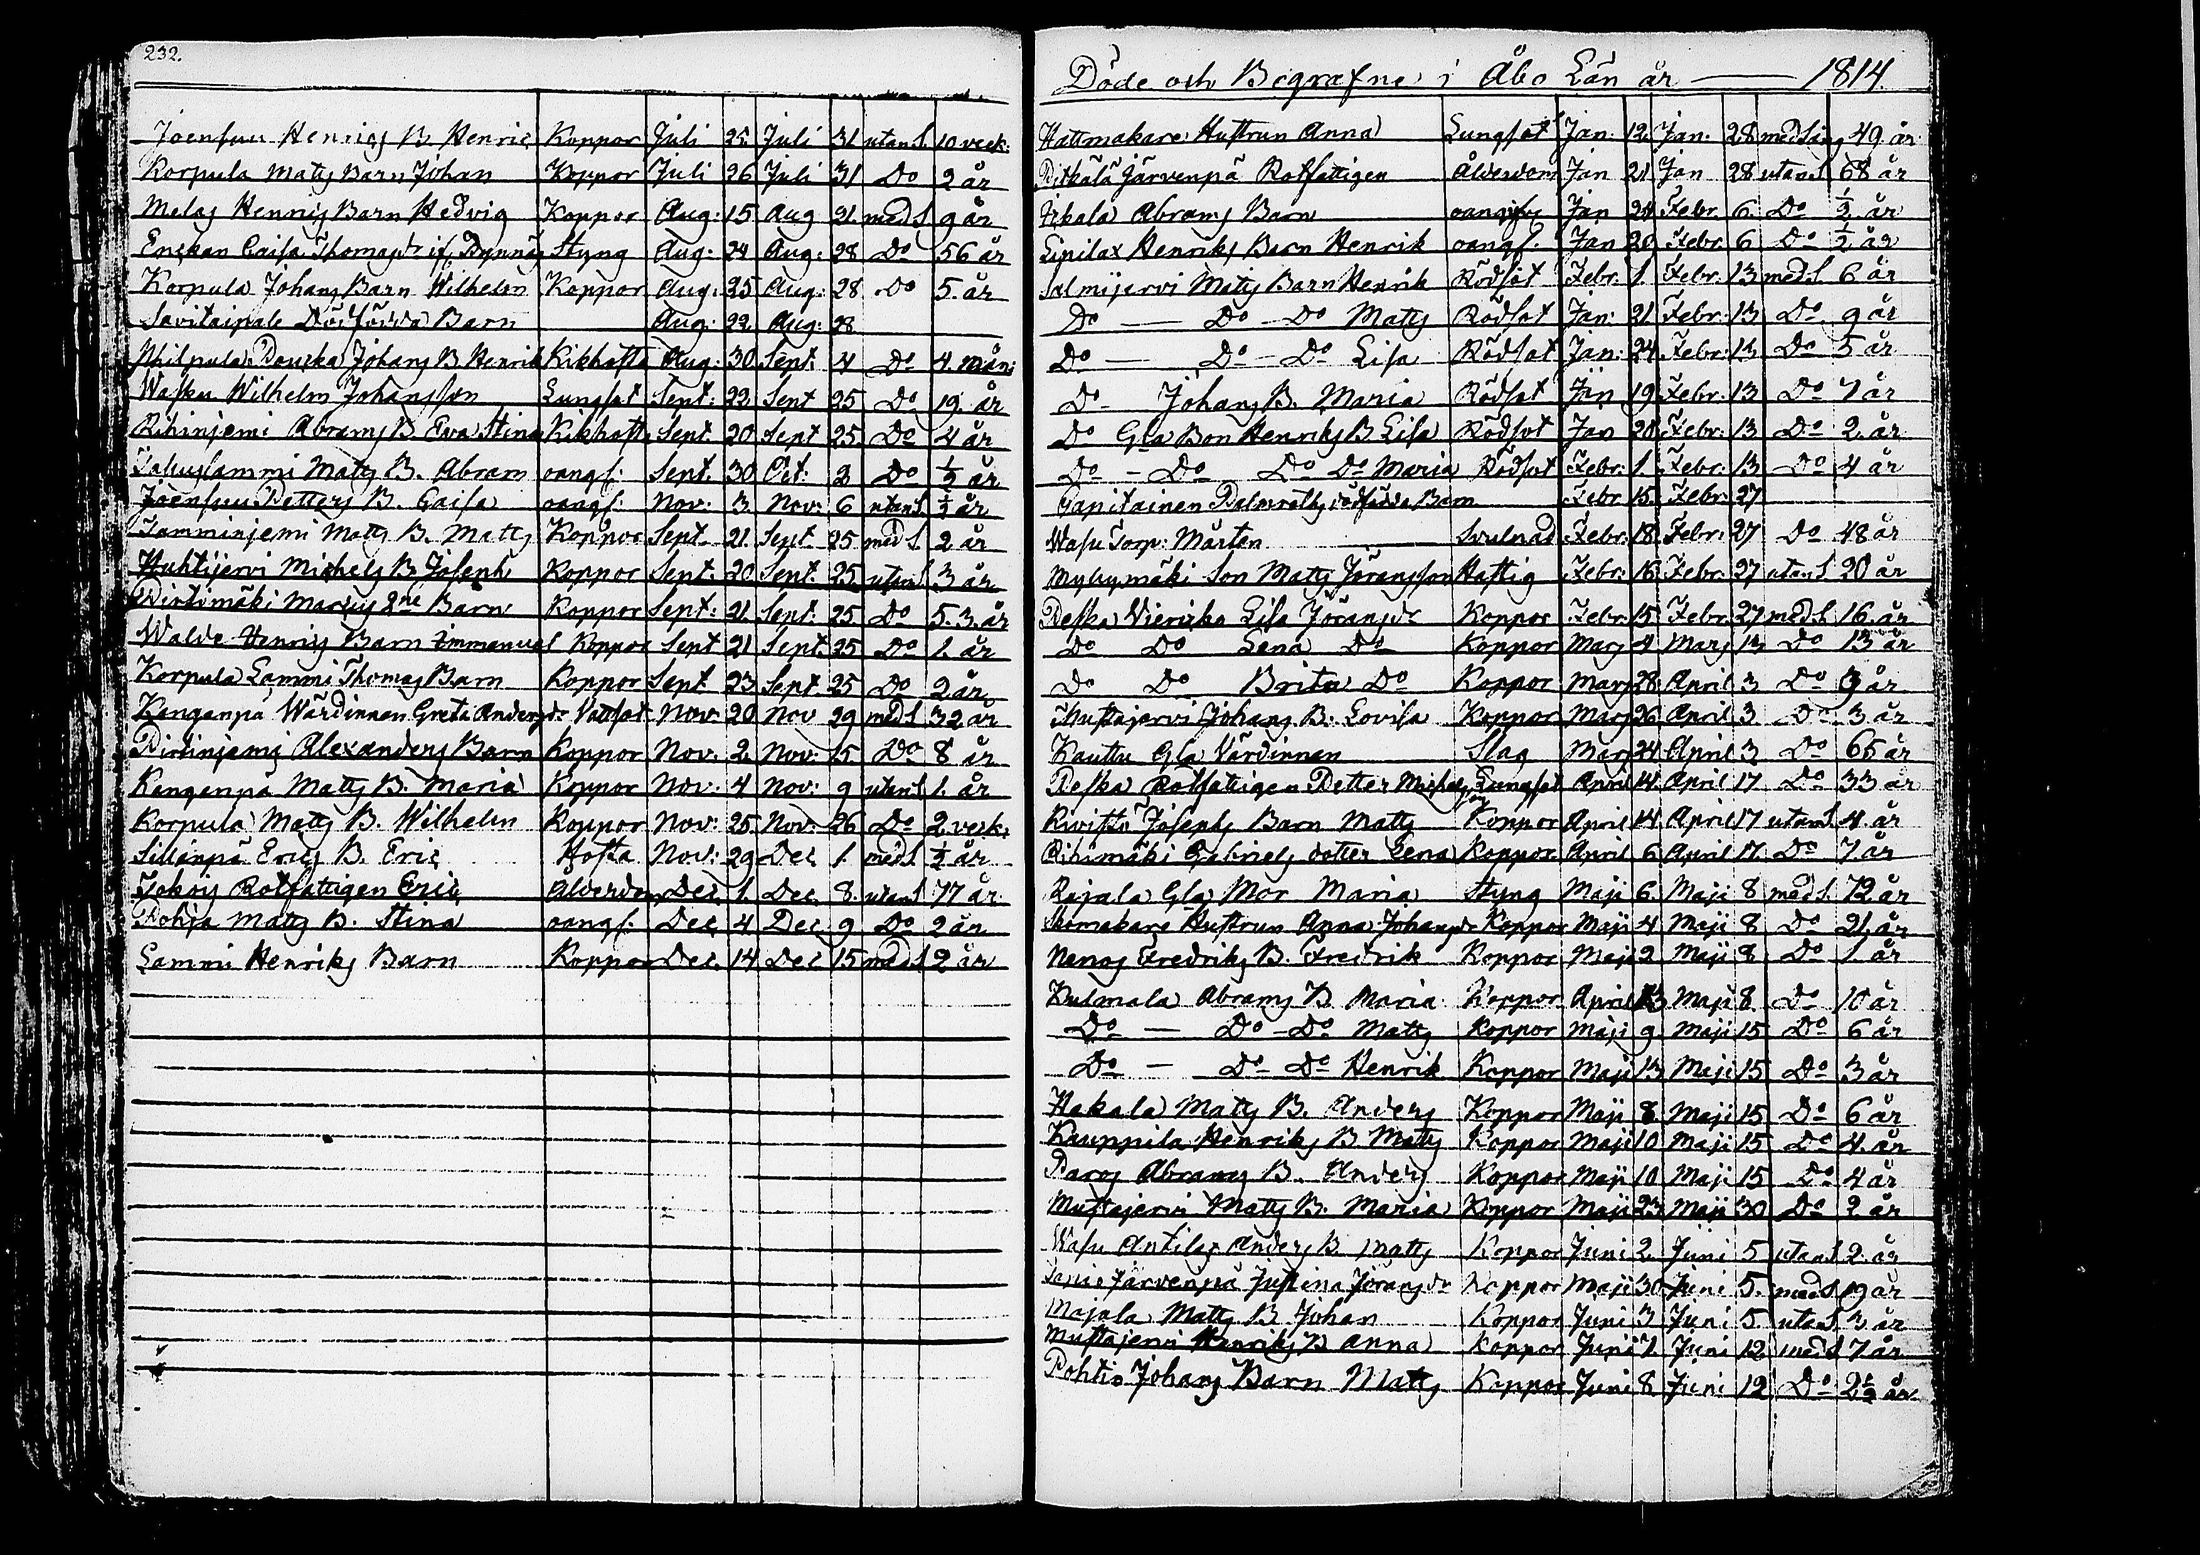 232.
Joensuu Henrics B. Henric Koppor Juli 25. Juli 31 utan S 10 veck:
Korpula Matts Barn Johan Koppor Juli 26 Juli 31 Do 2 år
Melas Henrics Barn Hedvig Koppor Aug: 15 Aug 21 med S 9 år
Enskan Caisa Thomasdr Styng Aug: 24 Aug: 28 Do 56 år
Korpula Johans Barn Wilhelm Koppor Aug: 25 Aug: 28 Do 5. år
Savitaipale Dödfödda Barn Aug: 22. Aug: 28
Philpula Pouska Johans B. Henrik Kikhosta Aug: 30 Sept. 4 Do 4. mån:
Wasku Wilhelm Johansson Lungsot Sept: 22. Sept 25 Do 19. år
Rihinjemi Abrams B. Eva Stina Kikhosta Sept. 20 Sept 25 Do 4 år
Matts B. Abram oangs: Sept. 30 Oct: 2 Do ½ år
Joensuu Petters B. Caisa oangs: Nov: 3 Nov: 6 utan S ½ år
Tamminjemi Matts B. Matts Koppor Sept. 21. Sept. 25 med S 2 år
Huhtijervi Michels B. Joseph Koppor Sept: 20 Sept. 25 utan S 3 år
Pirtimäki 2ne Barn Koppor Sept: 21. Sept: 25 Do 5. 3. år
Walde Henrics Barn Immanuel Koppor Sept 21 Sept: 25 Do 1. år
Korpula Lammi Thomas Barn Koppor Sept 23 Sept 25 Do 2 år
Kangenpä Wärdinnan Greta Andersdr Vattsot Nov: 20 Nov 29 med S 32 år
Pirtinjemi Alexanders Barn Koppor Nov. 2. Nov: 15 Do 8 år
Kangenpä Matts B. Maria Koppor Nov: 4 Nov: 9 utan S 1. år
Korpula Matts B. Wilhelm Koppor Nov: 25 Nov: 26 Do 2 veck:
Sillänpä Erics B. Eric Hosta Nov: 29 Dec 1. med S ½ år
Jokois Rotfattigen Eric Ålderdom Dec 1. Dec 8. utan S 77 år
Matts B. Stina oangs: Dec 4 Dec 9 Do 2 år
Lammi Henriks Barn Koppor Dec. 14 Dec 15 med S 2 år
Döde och Begrafne i Åbo Län år — 1814.
Hattmakare Hustrun Anna Lungsot Jan: 12. Jan: 28 med sång 49 år
Pitkälä Järvenpä Rotfattigen Ålderdom Jan 21 Jan 28 utan S 68 år
Irkala Abrams Barn Jan 24 Febr. 6. Do ½ år
Lipilax Henriks Barn Henrik oangs. Jan 20 Febr: 6 Do ½ år
Salmijervi Matts Barn Henrik Rödsot Febr: 1. Febr: 13 med S 6 år
Do — Do — Do Matts Rödsot Jan: 21 Febr: 13 Do 9 år
Do — Do — Do Lisa Rödsot Jan: 24 Febr: 13 Do 5 år
Do — Johans B. Maria Rödsot Jan 19 Febr. 13 Do 7 år
Do Gla Bon Henriks B. Lisa Rödsot Jan 28 Febr: 13 Do 2. år
Do — Do Do Do Maria Rödsot Febr: 1. Febr: 13 Do 4 år
Capitainen dödfödda Barn Febr 15 Febr: 27
Wasu Torp: Mårten Svulnad Febr: 18 Febr: 27 Do 48 år
Myllymäki Son Matts Jöransson Hastig Febr: 16 Febr. 27 utan S 20 år
Peska Vierikko Lisa Jöransdr Koppor Febr. 15 Febr. 27 med S 16. år
Do Do Lena Do Koppor Mars 4 Mars 13 Do 13 år
Do Do Brita Do Koppor Mars 28 April 3 Do 9 år
Mustajervi Johans B. Lovisa Koppor Mars 26 April 3 Do 3 år
Kauttu Gla Värdinnan Slag Mars 24 April 3 Do 65 år
Peska Rotfattigen Petter Michelsson Lungsot April 14. April 17 Do 33 år
Rivisto Josephs Barn Matts Koppor April 14. April 17 utan S 4. år
Rihimäki Gabriels dotter Lena Koppor April 6 April 17 Do 7 år
Rajala Gla Mor Maria Styng Maji 6. Maji 8 med S. 72 år
Skomakare Hustrun Anna Johansdr Koppor Maji 4 Maji 8 Do 21 år
Nanos Fredriks B. Fredrik Koppor Maji 2 Maji 8 Do 1 år
Kulmala Abrams B. Maria Koppor April Maji 8 Do 10 år
Do — Do — Do Matts Koppor Maji 9. Maji 15 Do 6 år
Do — Do — Do Henrik Koppor Maji 13 Maji 15 Do 3 år
Hakala Matts B. Anders Koppor Maji 8 Maji 15 Do 6 år
Kauppila Henriks B. Matts Koppor Maji 10 Maji 15 Do 4. år
Paros Abrams B. Anders Koppor Maji 10 Maji 15 Do 4 år
Mustajervi Matts B. Maria Koppor Maji 23 Maji 30 Do 2 år
Wasu Antilas Anders B. Matts Koppor Juni 2. Juni 5 utan S 2. år
Järvenpä Justina Jöransdr Koppor Maji 30 Juni 5. med S 19 år
Majala Matts B. Johan Koppor Juni 3 Juni 5 utan S 3 år
Mustajervi Henriks B. Anna Koppor Juni 7. Juni 12 med S 7 år
Pohtio Johans Barn Matts Koppor Juni 8 Juni 12 Do 2½ år